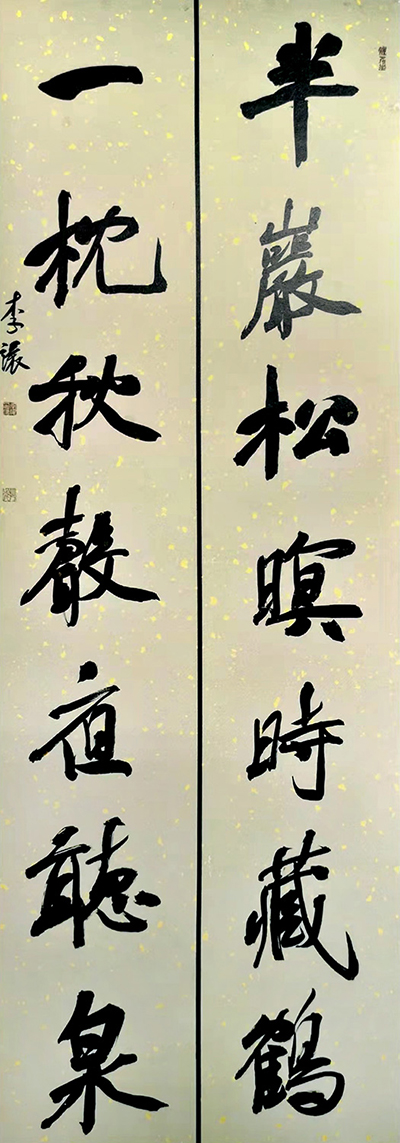 半巖松暝時藏鶴
一枕秋聲夜聽泉
李瑗